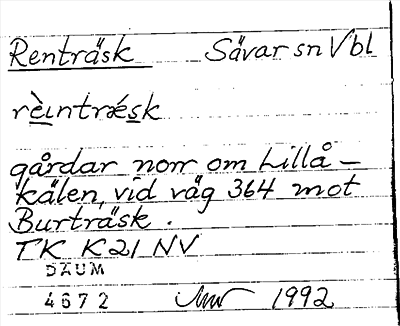 Renträsk Sävar sn Vbl
rèıntræ´sk
gårdar norr om Lillå-
kälen, vid väg 364 mot
Burträsk.
TK K21 NV
DAUM
4672 1992